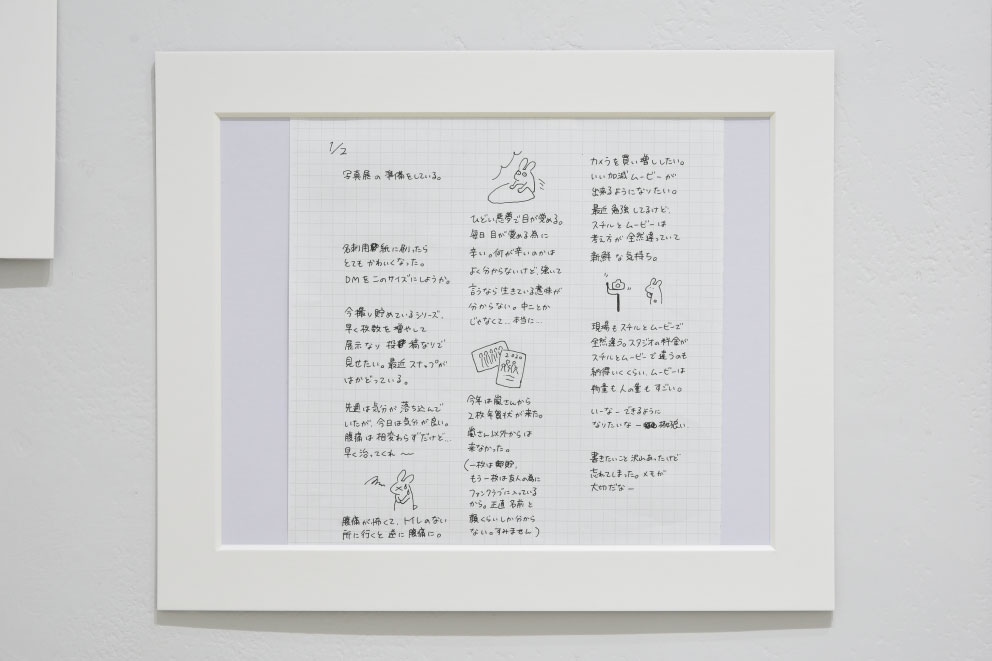 1/2
写真展の準備をしている。
名刺用紙に刷ったら
とてもかわいくなった。
DMをこのサイズにしようか。
今撮り貯めているシリーズ、
早く枚数を増やして
展示なり投稿なりで
見せたい。最近スナップが
はかどっている。
先週は気分が落ち込んで
いたが、今日は気分が良い。
腹痛は相変わらずだけど…
早く治ってくれ〜
腹痛が怖くて、トイレのない
所に行くと逆に腹痛に。
ひどい悪夢で目が覚める。
毎日目が覚める為に
辛い。何が辛いのかは
よく分からないけど、強いて
言うなら生きている意味が
分からない。中二とか
じゃなくて…本当に…
2020
今年は嵐さんから
2枚年賀状が来た。
嵐さん以外からは
来なかった。
(一枚は郵貯、
もう一枚は友人の為に
ファンクラブに入っている
から。正直名前と
顔くらいしか分から
ない。すみません)
カメラを買い増ししたい。
いい加減ムービーが
出来るようになりたい。
最近勉強してるけど、
スチルとムービーは
考え方が全然違っていて
新鮮な気持ち。
現場もスチルとムービーで
全然違う。スタジオの料金が
スチルとムービーで違うのも
納得いくくらい、ムービーは
物量も人の量もすごい。
いーなーできるように
なりたいなー
書きたいこと沢山あったけど
忘れてしまった。メモが
大切だなー